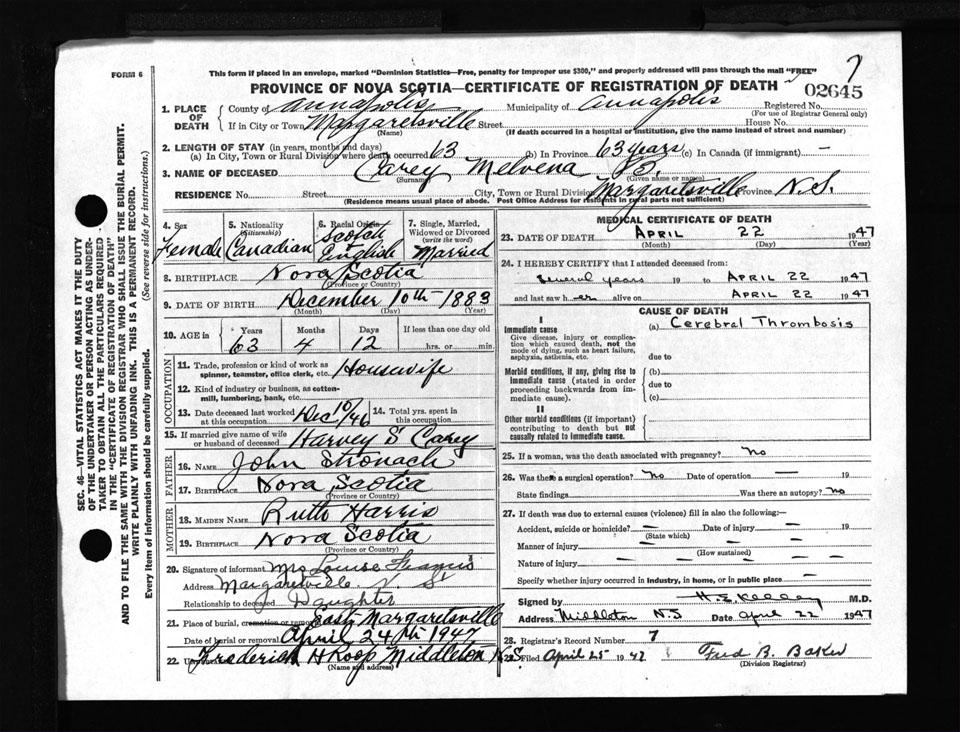 FORM 6
This form if placed in an envelope, marked "Dominion Statistics—Free, penalty for improper use $300," and properly addressed will pass through the mail "FREE"
7
PROVINCE OF NOVA SCOTIA—CERTIFICATE OF REGISTRATION OF DEATH
02645
1. PLACE OF DEATH
County of Annapolis Municipality of Annapolis Registered No.
(For use of Registrar General only)
If in City or Town Margaretsville Street House No.
(Name) (If death occurred in a hospital or institution, give the name instead of street and number)
2. LENGTH OF STAY (in years, months and days)
(a) In City, Town or Rural Division where death occurred 63 (b) In Province 63 years (c) In Canada (if immigrant) —
3. NAME OF DECEASED Carey Melvena B.
(Surname) (Given name or names)
RESIDENCE No. Street City, Town or Rural Division Margaretsville Province N.S.
(Residence means usual place of abode. Post Office Address for residents in rural parts not sufficient)
4. Sex Female
5. Nationality (Citizenship) Canadian
6. Racial Origin Scotch English
7. Single, Married, Widowed or Divorced (write the word) Married
8. BIRTHPLACE Nova Scotia
(Province or Country)
9. DATE OF BIRTH December 10th 1883
(Month) (Day) (Year)
10. AGE in Years Months Days If less than one day
63 4 12 hrs. or min.
OCCUPATION
11. Trade, profession or kind of work as spinner, teamster, office clerk, etc. Housewife
12. Kind of industry or business, as cotton-mill, lumbering, bank, etc.
13. Date deceased last worked at this occupation Dec 10/46
14. Total yrs. spent in this occupation
15. If married give name of wife or husband of deceased Harvey S Carey
FATHER
16. NAME John Stronach
17. BIRTHPLACE Nova Scotia
(Province or Country)
MOTHER
18. MAIDEN NAME Ruth Harris
19. BIRTHPLACE Nova Scotia
(Province or Country)
20. Signature of informant Mrs Louise
Address Margaretville N S
Relationship to deceased Daughter
21. Place of burial, cremation or removal East Margaretsville
Date of burial or removal April 24th 1947
22. Frederick H Roop Middleton N.S.
(Name and address)
MEDICAL CERTIFICATE OF DEATH
23. DATE OF DEATH APRIL 22 1947
(Month) (Day) (Year)
24. I HEREBY CERTIFY that I attended deceased from:
several years 19 to APRIL 22 1947
and last saw her alive on APRIL 22 1947
CAUSE OF DEATH
I
Immediate cause
Give disease, injury or complication which caused death, not the mode of dying, such as heart failure, asphyxia, asthenia, etc.
(a) Cerebral Thrombosis
due to
Morbid conditions, if any, giving rise to immediate cause (stated in order proceeding backwards from immediate cause).
(b)
due to
(c)
II
Other morbid conditions (if important) contributing to death but not causally related to immediate cause.
25. If a woman, was the death associated with pregnancy? No
26. Was there a surgical operation? No Date of operation — 19
State findings Was there an autopsy? No
27. If death was due to external causes (violence) fill in also the following:—
Accident, suicide or homicide? — Date of injury — 19
(State which)
Manner of injury — — —
(How sustained)
Nature of injury — — —
Specify whether injury occurred in industry, in home, or in public place —
Signed by H.E. Kelley M.D.
Address Middleton N.S Date April 22 1947
28. Registrar's Record Number 7
29. Filed April 25 1947 Fred B. Baker
(Division Registrar)
SEC. 46—VITAL STATISTICS ACT MAKES IT THE DUTY
OF THE UNDERTAKER OR PERSON ACTING AS UNDER-
TAKER TO OBTAIN ALL THE PARTICULARS REQUIRED
IN THE "CERTIFICATE OF REGISTRATION OF DEATH"
AND TO FILE THE SAME WITH THE DIVISION REGISTRAR WHO SHALL ISSUE THE BURIAL PERMIT.
WRITE PLAINLY WITH UNFADING INK. THIS IS A PERMANENT RECORD.
Every item of information should be carefully supplied. (See reverse side for instructions.)